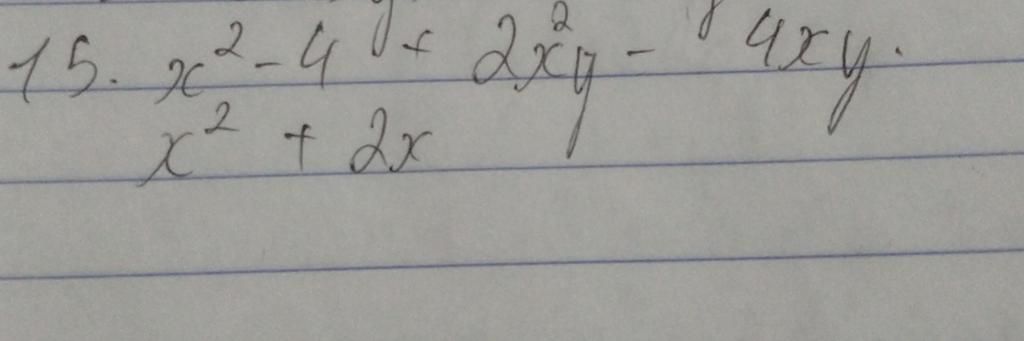 15. x² - 4 + 2x²y - 4xy.
x² + 2x